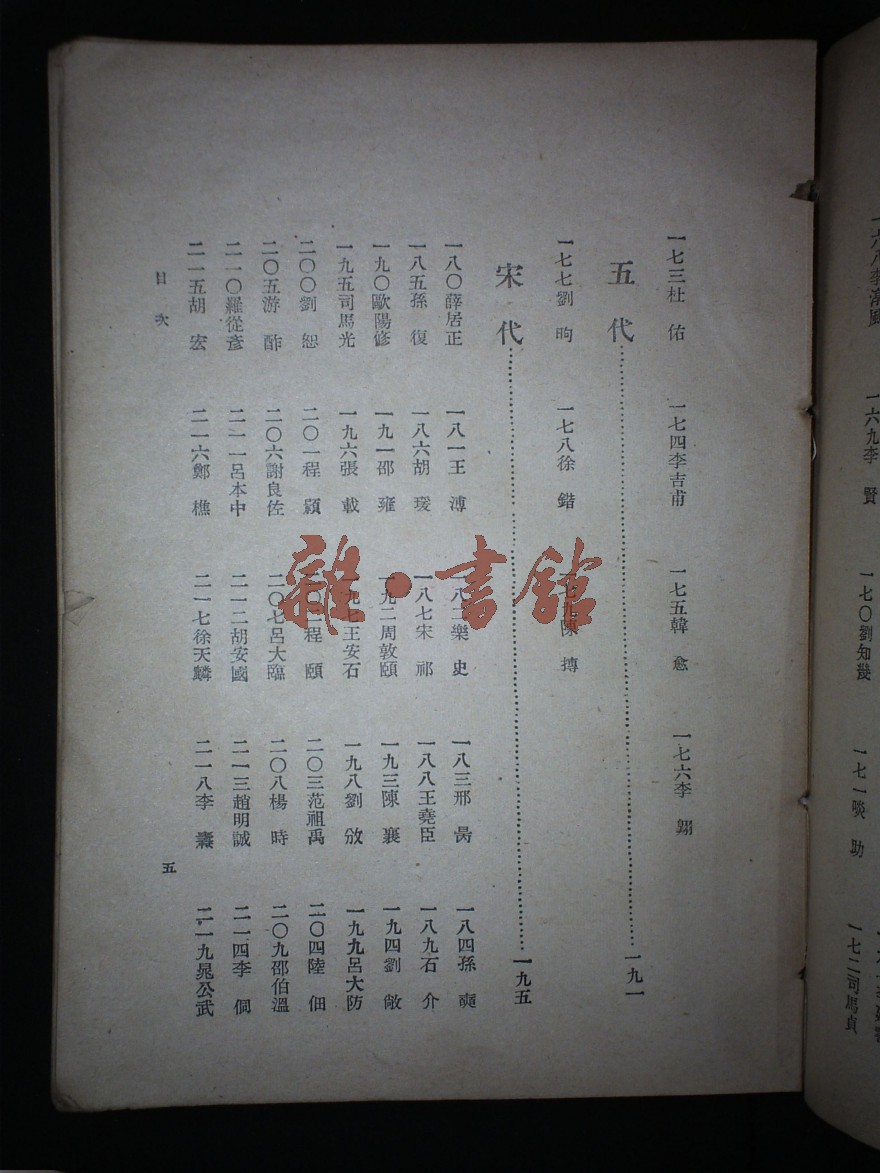 一六八李淳風 一六九李賢 一七〇劉知幾 一七一啖助 一七二司馬貞
一七三杜佑 一七四李吉甫 一七五韓愈 一七六李翺
五代……一九一
一七七劉昫 一七八徐鍇 一七九陳摶
宋代……一九五
一八〇薛居正 一八一王溥 一八二樂史 一八三邢昺 一八四孫奭
一八五孫復 一八六胡瑗 一八七宋祁 一八八王堯臣 一八九石介
一九〇歐陽修 一九一邵雍 一九二周敦頤 一九三陳襄 一九四劉敞
一九五司馬光 一九六張載 一九七王安石 一九八劉攽 一九九呂大防
二〇〇劉恕 二〇一程顥 二〇二程頤 二〇三范祖禹 二〇四陸佃
二〇五游酢 二〇六謝良佐 二〇七呂大臨 二〇八楊時 二〇九邵伯溫
二一〇羅從彥 二一一呂本中 二一二胡安國 二一三趙明誠 二一四李侗
二一五胡宏 二一六鄭樵 二一七徐天麟 二一八李燾 二一九晁公武
目次 五
雜·書館